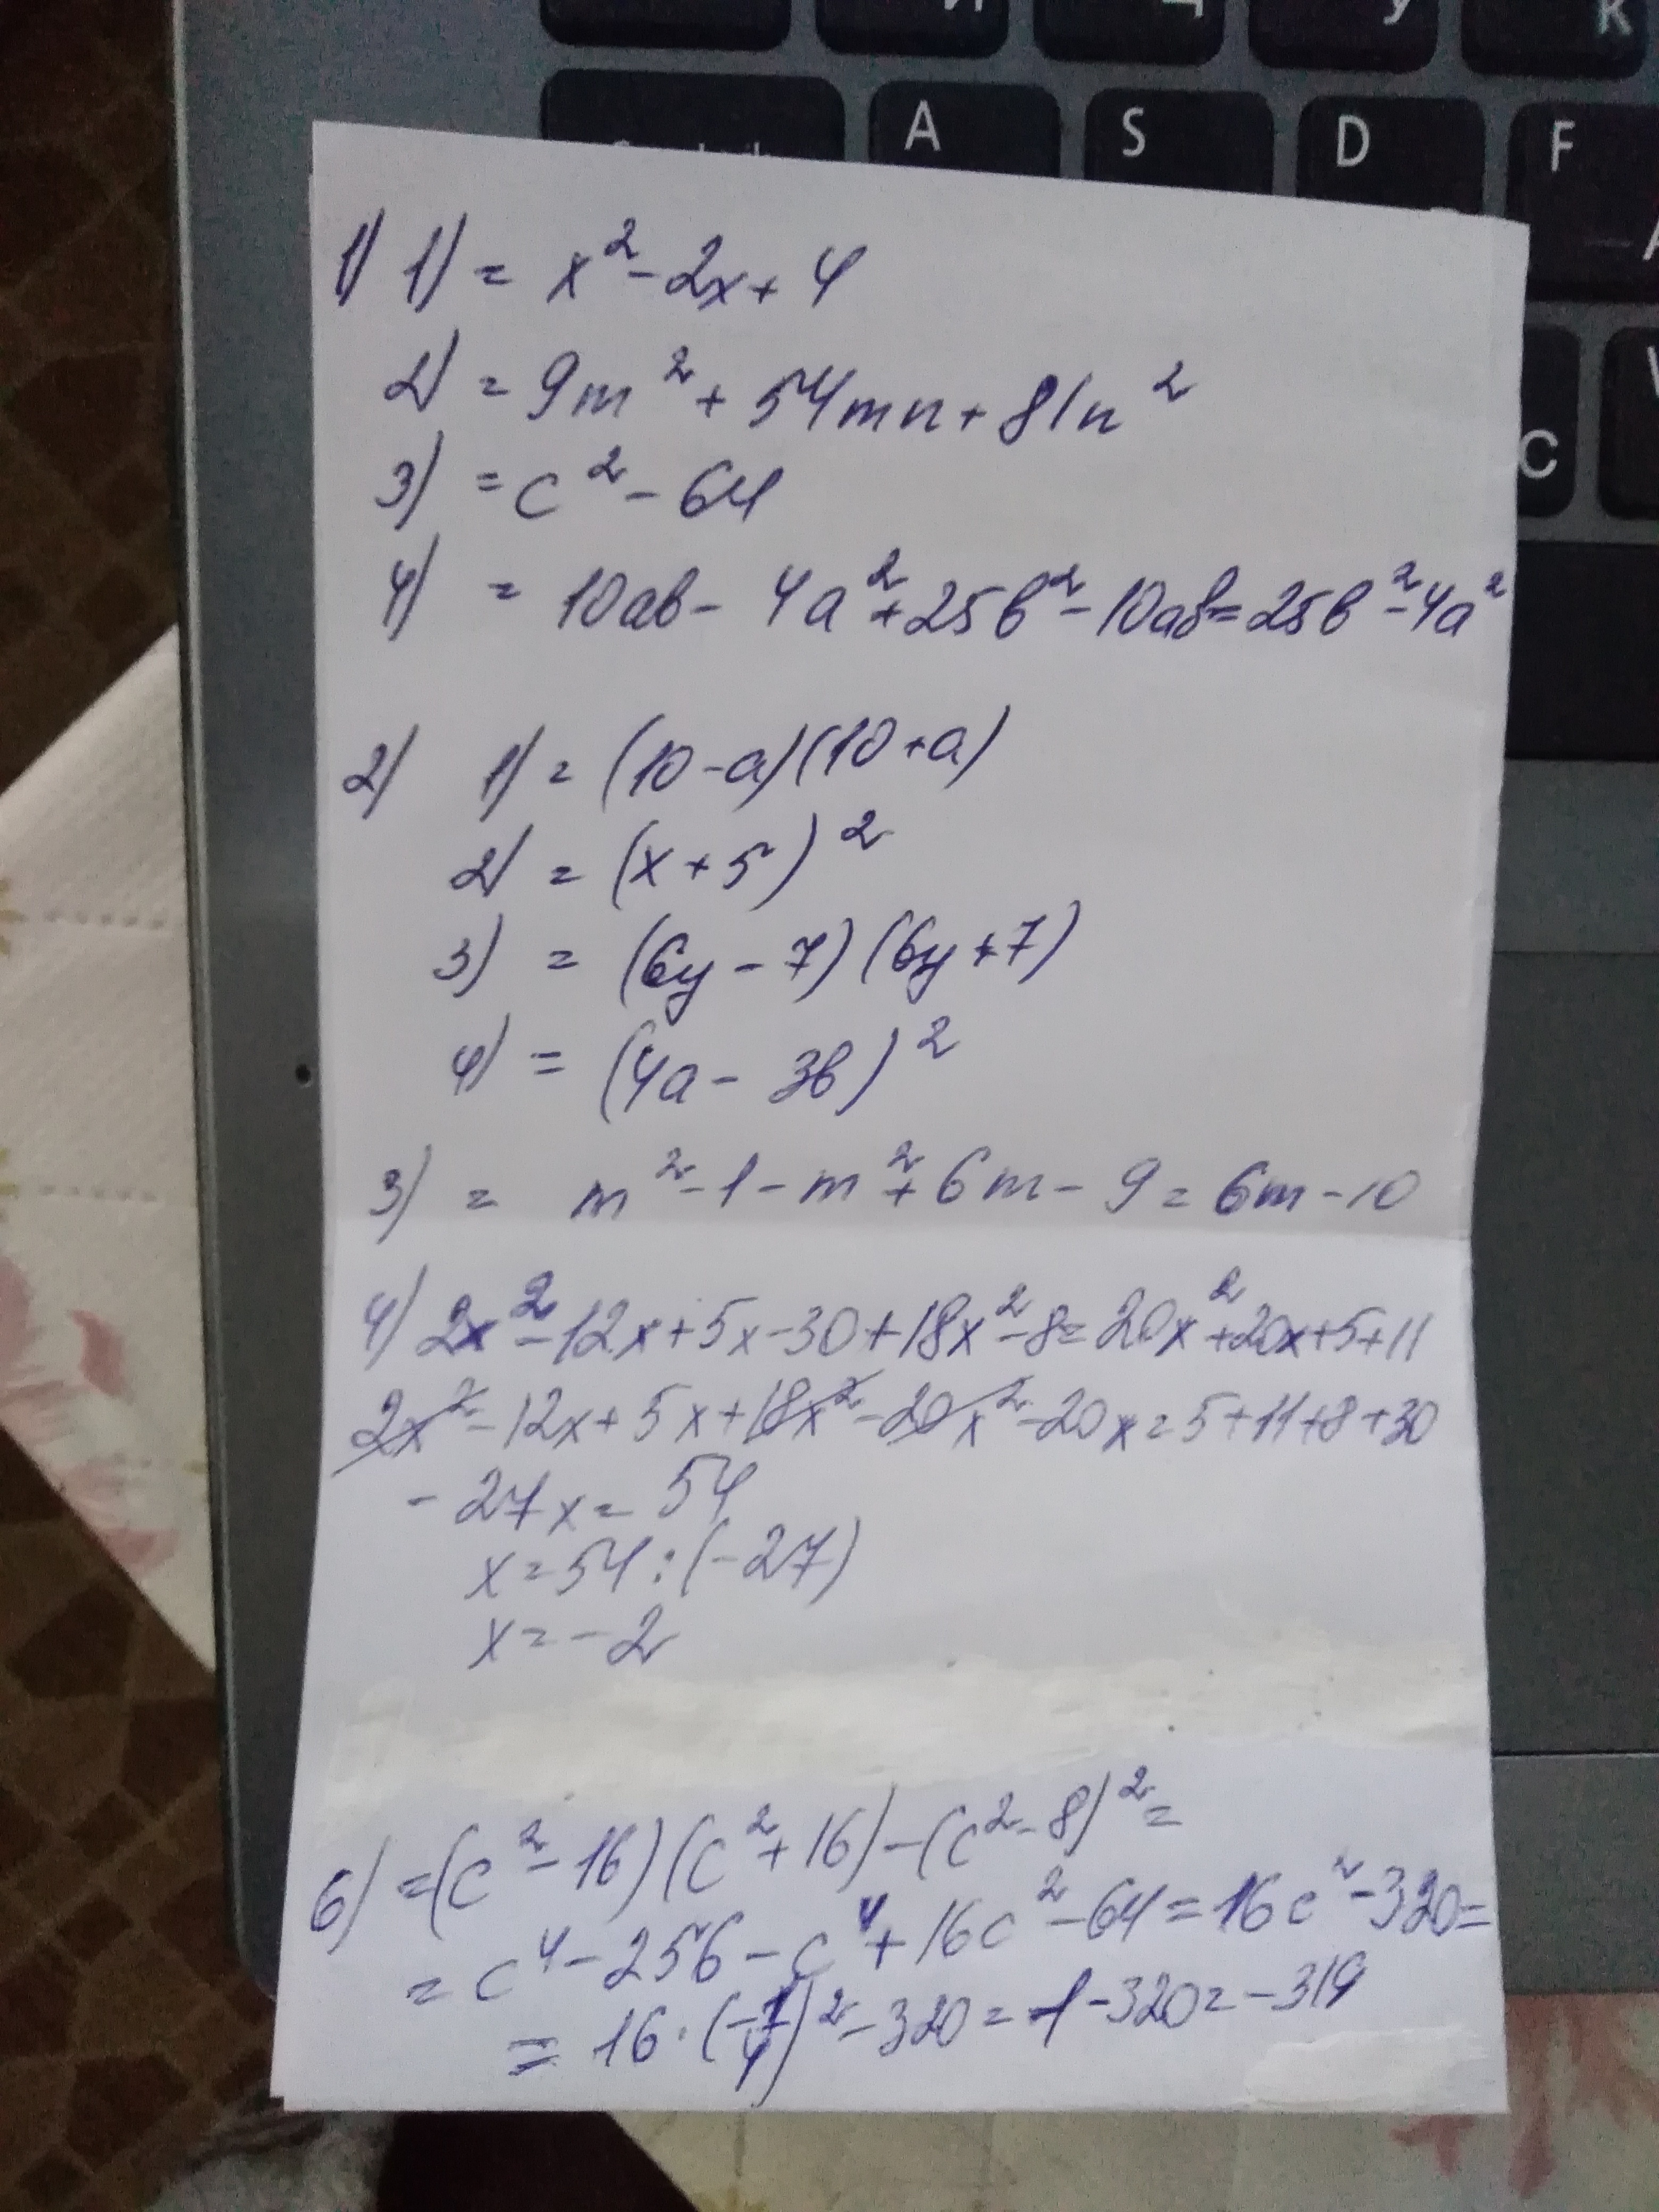 И Ц У К
A S D F
C
1) 1) = x² - 2x + 4
2) = 9m² + 54mn + 81n²
3) = c² - 64
4) = 10ab - 4a² + 25b² - 10ab = 25b² - 4a²
2) 1) = (10 - a)(10 + a)
2) = (x + 5)²
3) = (6y - 7)(6y + 7)
4) = (4a - 3b)²
3) = m² - 1 - m² + 6m - 9 = 6m - 10
4) 2x² - 12x + 5x - 30 + 18x² - 8 = 20x² + 20x + 5 + 11
2x² - 12x + 5x + 18x² - 20x² - 20x = 5 + 11 + 8 + 30
- 27x = 54
x = 54 : (-27)
x = -2
6) = (c² - 16)(c² + 16) - (c² - 8)² =
= c⁴ - 256 - c⁴ + 16c² - 64 = 16c² - 320 =
= 16 · (-1/4)² - 320 = 1 - 320 = -319